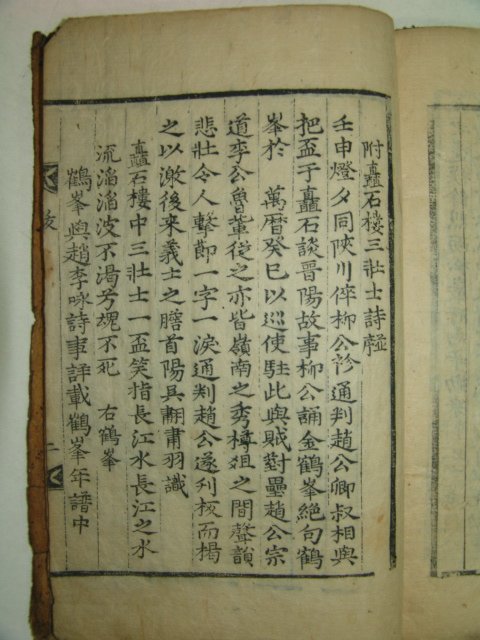 附矗石樓三壯士詩韻
壬申燈夕同陜川倅柳公袗通判趙公卿叔相與
把盃于矗石談晋陽故事柳公誦金鶴峯絶句鶴
峯於 萬曆癸巳以巡使駐此與賊對壘趙公宗
道李公魯輩從之亦皆嶺南之秀樽俎之間聲韻
悲壯令人擊節一字一淚通判趙公遂刋板而揭
之以激後来義士之膽首陽具翮肅羽識
矗石樓中三壯士一盃笑指長江水長江之水
流滔滔波不渴兮魂不死 右鶴峯
鶴峯與趙李咏詩事詳載鶴峯年譜中
跋
二